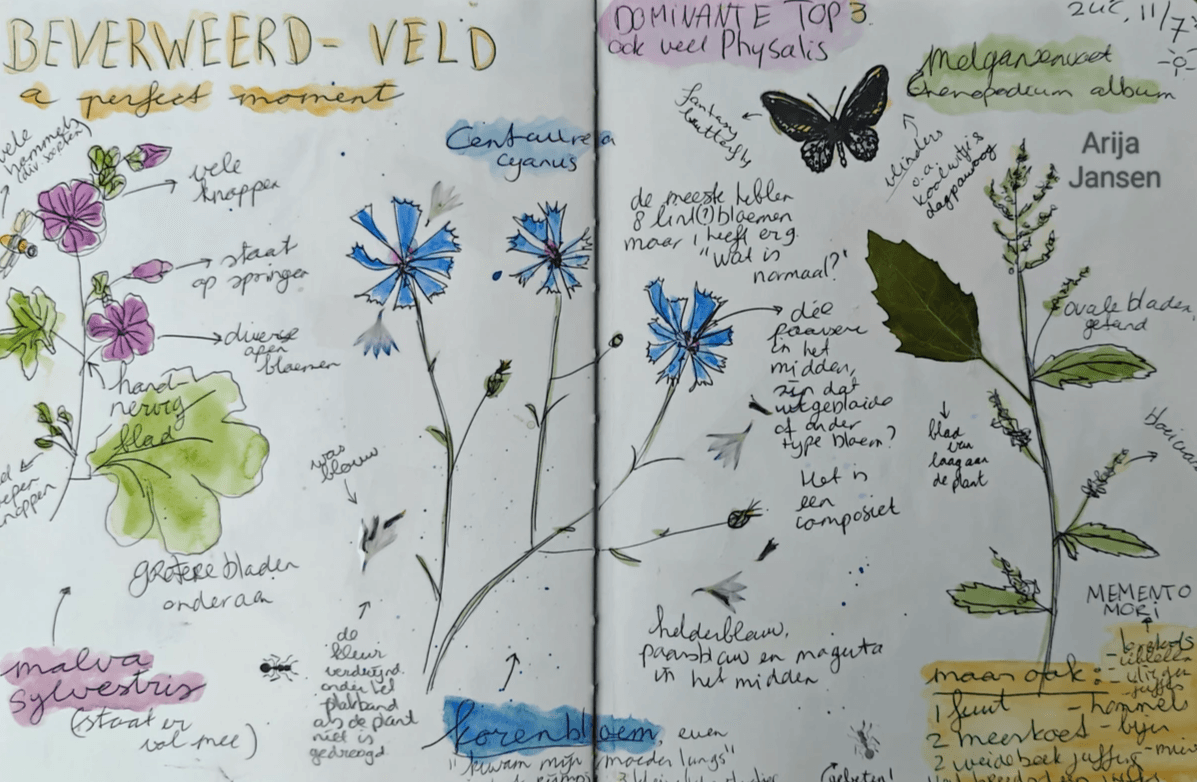 BEVERWEERD- VELD
a perfect moment
vele
hommels
vele
knoppen
staat
op springen
diverse
open
bloemen
hand-
nervig
blad
knoppen
grotere bladen
onderaan
malva
sylvestris
(staat er
vol mee)
Centaurea
cyanus
was
blauw
de
kleur
verdwijnd
onder het
plakband
als de plant
niet is
gedroogd
korenbloem, even
"kwam mijn moeder langs"
DOMINANTE TOP 3
ook veel Physalis
fantasy
butterfly
de meeste hebben
8 lint(?)bloemen
maar 1 heeft erg
"Wat is
normaal?"
die
paarse
in het
midden,
zijn dat
uitgebloeide
of ander
type bloem?
Het is
een
composiet
helderblauw,
paarsblauw en magenta
in het midden
11/7
Melganzenvoet
Chenopodium album
vlinders
o.a.
koolwitje &
dagpauwoog
Arija
Jansen
ovale bladen,
getand
blad
van
laag aan
de plant
MEMENTO
MORI
maar ook:
1 fuut
- hommels
2 meerkoet
- bijen